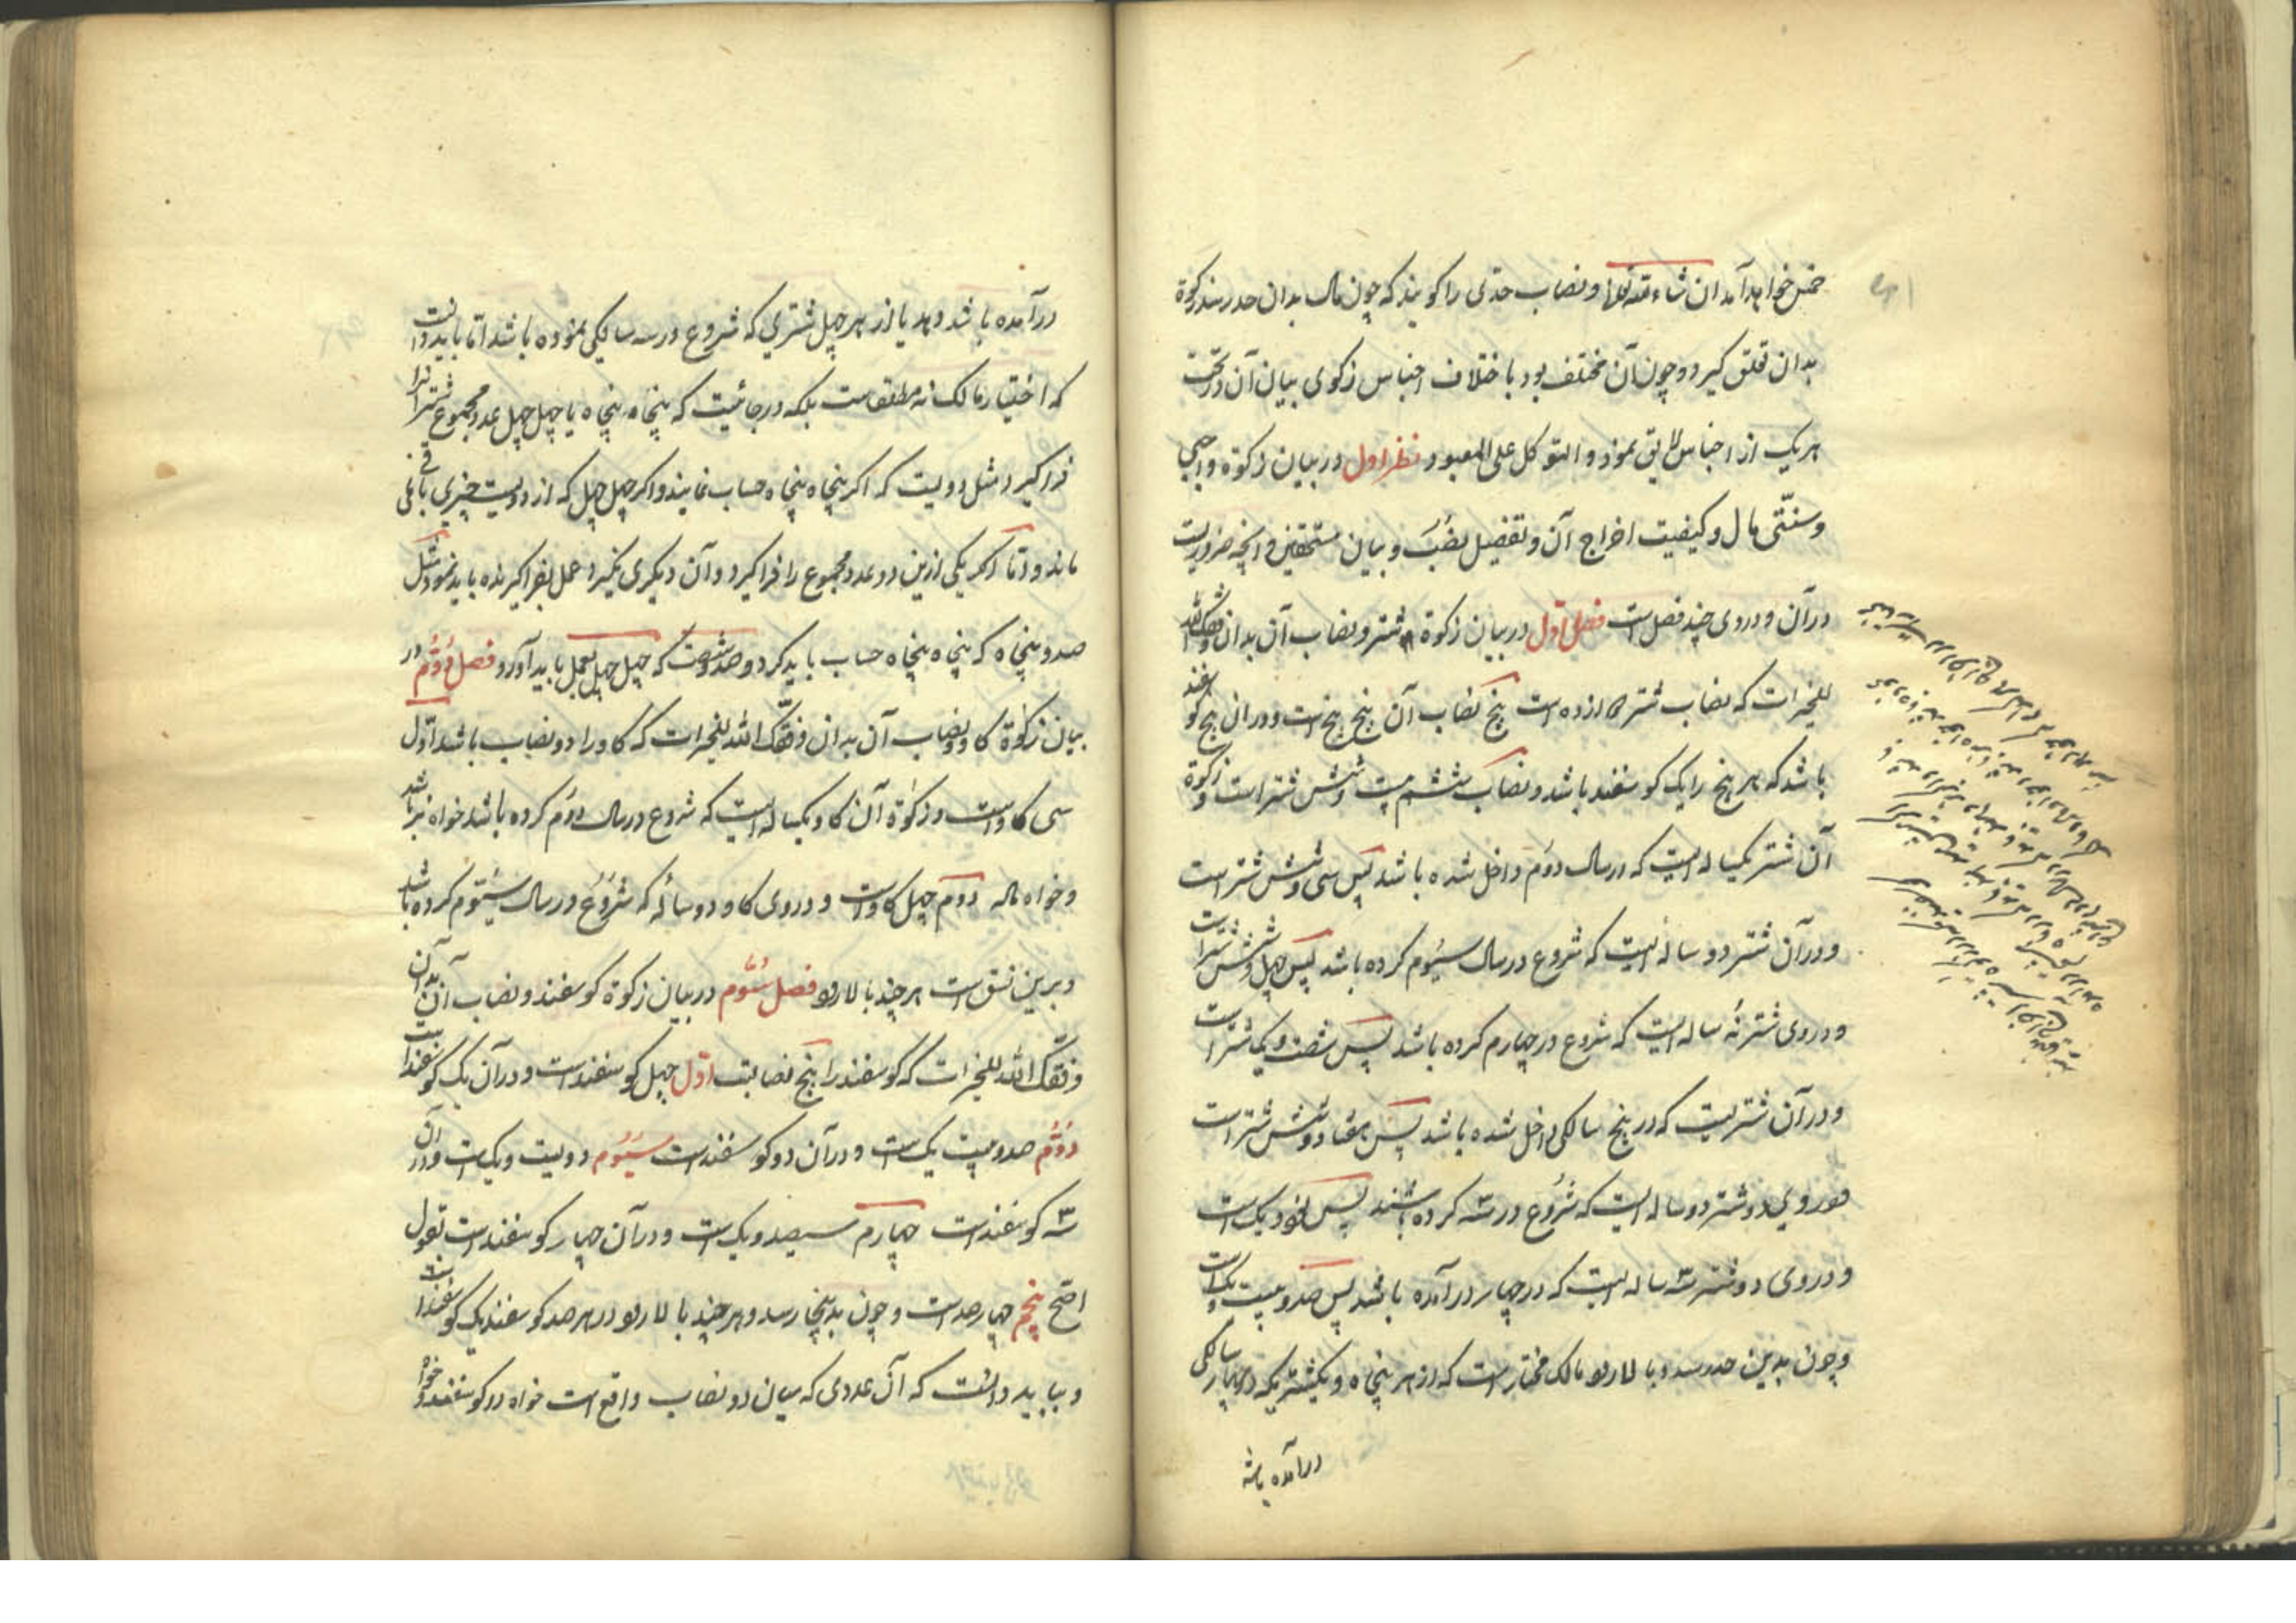 خمس خواهد آمد ان شاء الله تعالی و نصاب حدّی را کویند که چون مال بدان حد رسد زکوة
بدان تعلق کیرد و چون آن مختلف بود باختلاف اجناس زکوی بیان آن در تحت
هر یک از اجناس لایق نمود و التوکل علی المعبود نظر اول در بیان زکوة واجبی
و سنّتی مال و کیفیت اخراج آن و تفصیل نصب و بیان مستحقین و آنچه ضروریست
در آن و دروی چند فصل است فصل اوّل در بیان زکوة شتر و نصاب آن بدان وفقک الله
للخیرات که نصاب شتر دوازده است پنج نصاب آن پنج پنج است و در آن پنج کوسفند
باشد که هر پنج را یک کوسفند باشد و نصاب ششم بیست و شش شتر است و زکوة
آن شتر یکساله ایست که در سال دوّم داخل شده باشد پس سی و شش شتر است
و در آن شتر دو ساله ایست که شروع در سال سیوم کرده باشد پس چهل و شش شتر است
و دروی شتر سه ساله ایست که شروع در چهارم کرده باشد پس شصت و یک شتر است
و در آن شتریست که در پنج سالکی داخل شده باشد پس هفتاد و شش شتر است
و دروی دو شتر دو ساله ایست که شروع در سه کرده باشند پس نود و یک است
و دروی دو شتر سه ساله ایست که در چهار در آمده باشد پس صد و بیست و یک است
و چون بدین حد رسد و بالا رود مالک مختار است که از هر پنجاه و یکشتریکه در چهار سالکی
در آمده باشد
در آمده باشد و هد یا از هر چهل شتری که شروع در سه سالکی نموده باشد امّا باید دانست
که اختیار مالک نه مطلقست بلکه در جائیست که پنجاه پنجاه یا چهل چهل عدد مجموع شتر را
فرا کیرد مثل دویست که اکر پنجاه پنجاه حساب نمایند و اکر چهل چهل که از دویست چیزی باقی نمی
ماند و امّا اکر یکی ازین دو عدد مجموع را فرا کیرد و آن دیکری نکیرد عمل بفرا کیرنده باید نمود مثل
صد و پنجاه که پنجاه پنجاه حساب باید کرد و صد و شصت که چهل چهل بعمل باید آورد فصل دوّم در
بیان زکوة کاو و نصاب آن بدان وفقک الله للخیرات که کاو را دو نصاب باشد اوّل
سی کاو است و زکوة آن کاو یکساله ایست که شروع در سال دوّم کرده باشد خواه نر باشد
و خواه ماده دوم چهل کاو است و دروی کاو دو ساله که شروع در سال سیّوم کرده باشد
و برین نسق است هر چند بالا رود فصل سیّوم در بیان زکوة کوسفند و نصاب آن بدان
وفقک الله للخیرات که کوسفند را پنج نصابست اوّل چهل کوسفند است و در آن یک کوسفند است
دوّم صد و بیست یک است و در آن دو کوسفند است سیّوم دویست و یک است و در آن
سه کوسفند است چهارم سیصد و یک است و در آن چهار کوسفند است بقول
اصح پنجم چهار صد است و چون بدینجا رسد و هر چند بالا رود در هر صد کوسفند یک کوسفند است
و بباید دانست که آن عددی که میان دو نصاب واقع است خواه در کوسفند و خواه